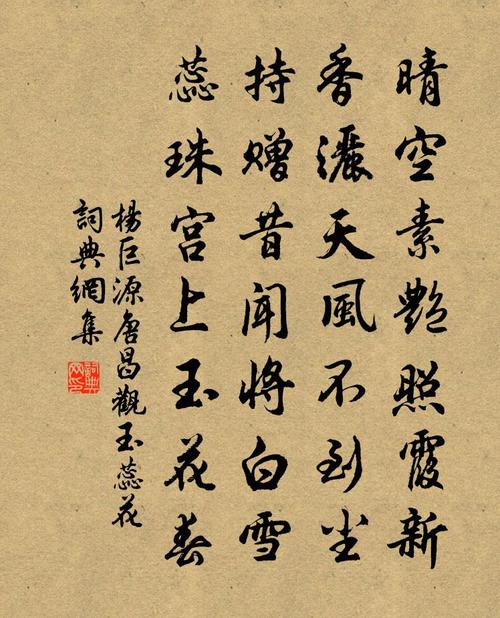 晴空素艷照霞新
香灑天風不到尘
持贈昔聞將白雪
蕊珠宮上玉花春
楊巨源唐昌觀玉蕊花
詞典網集